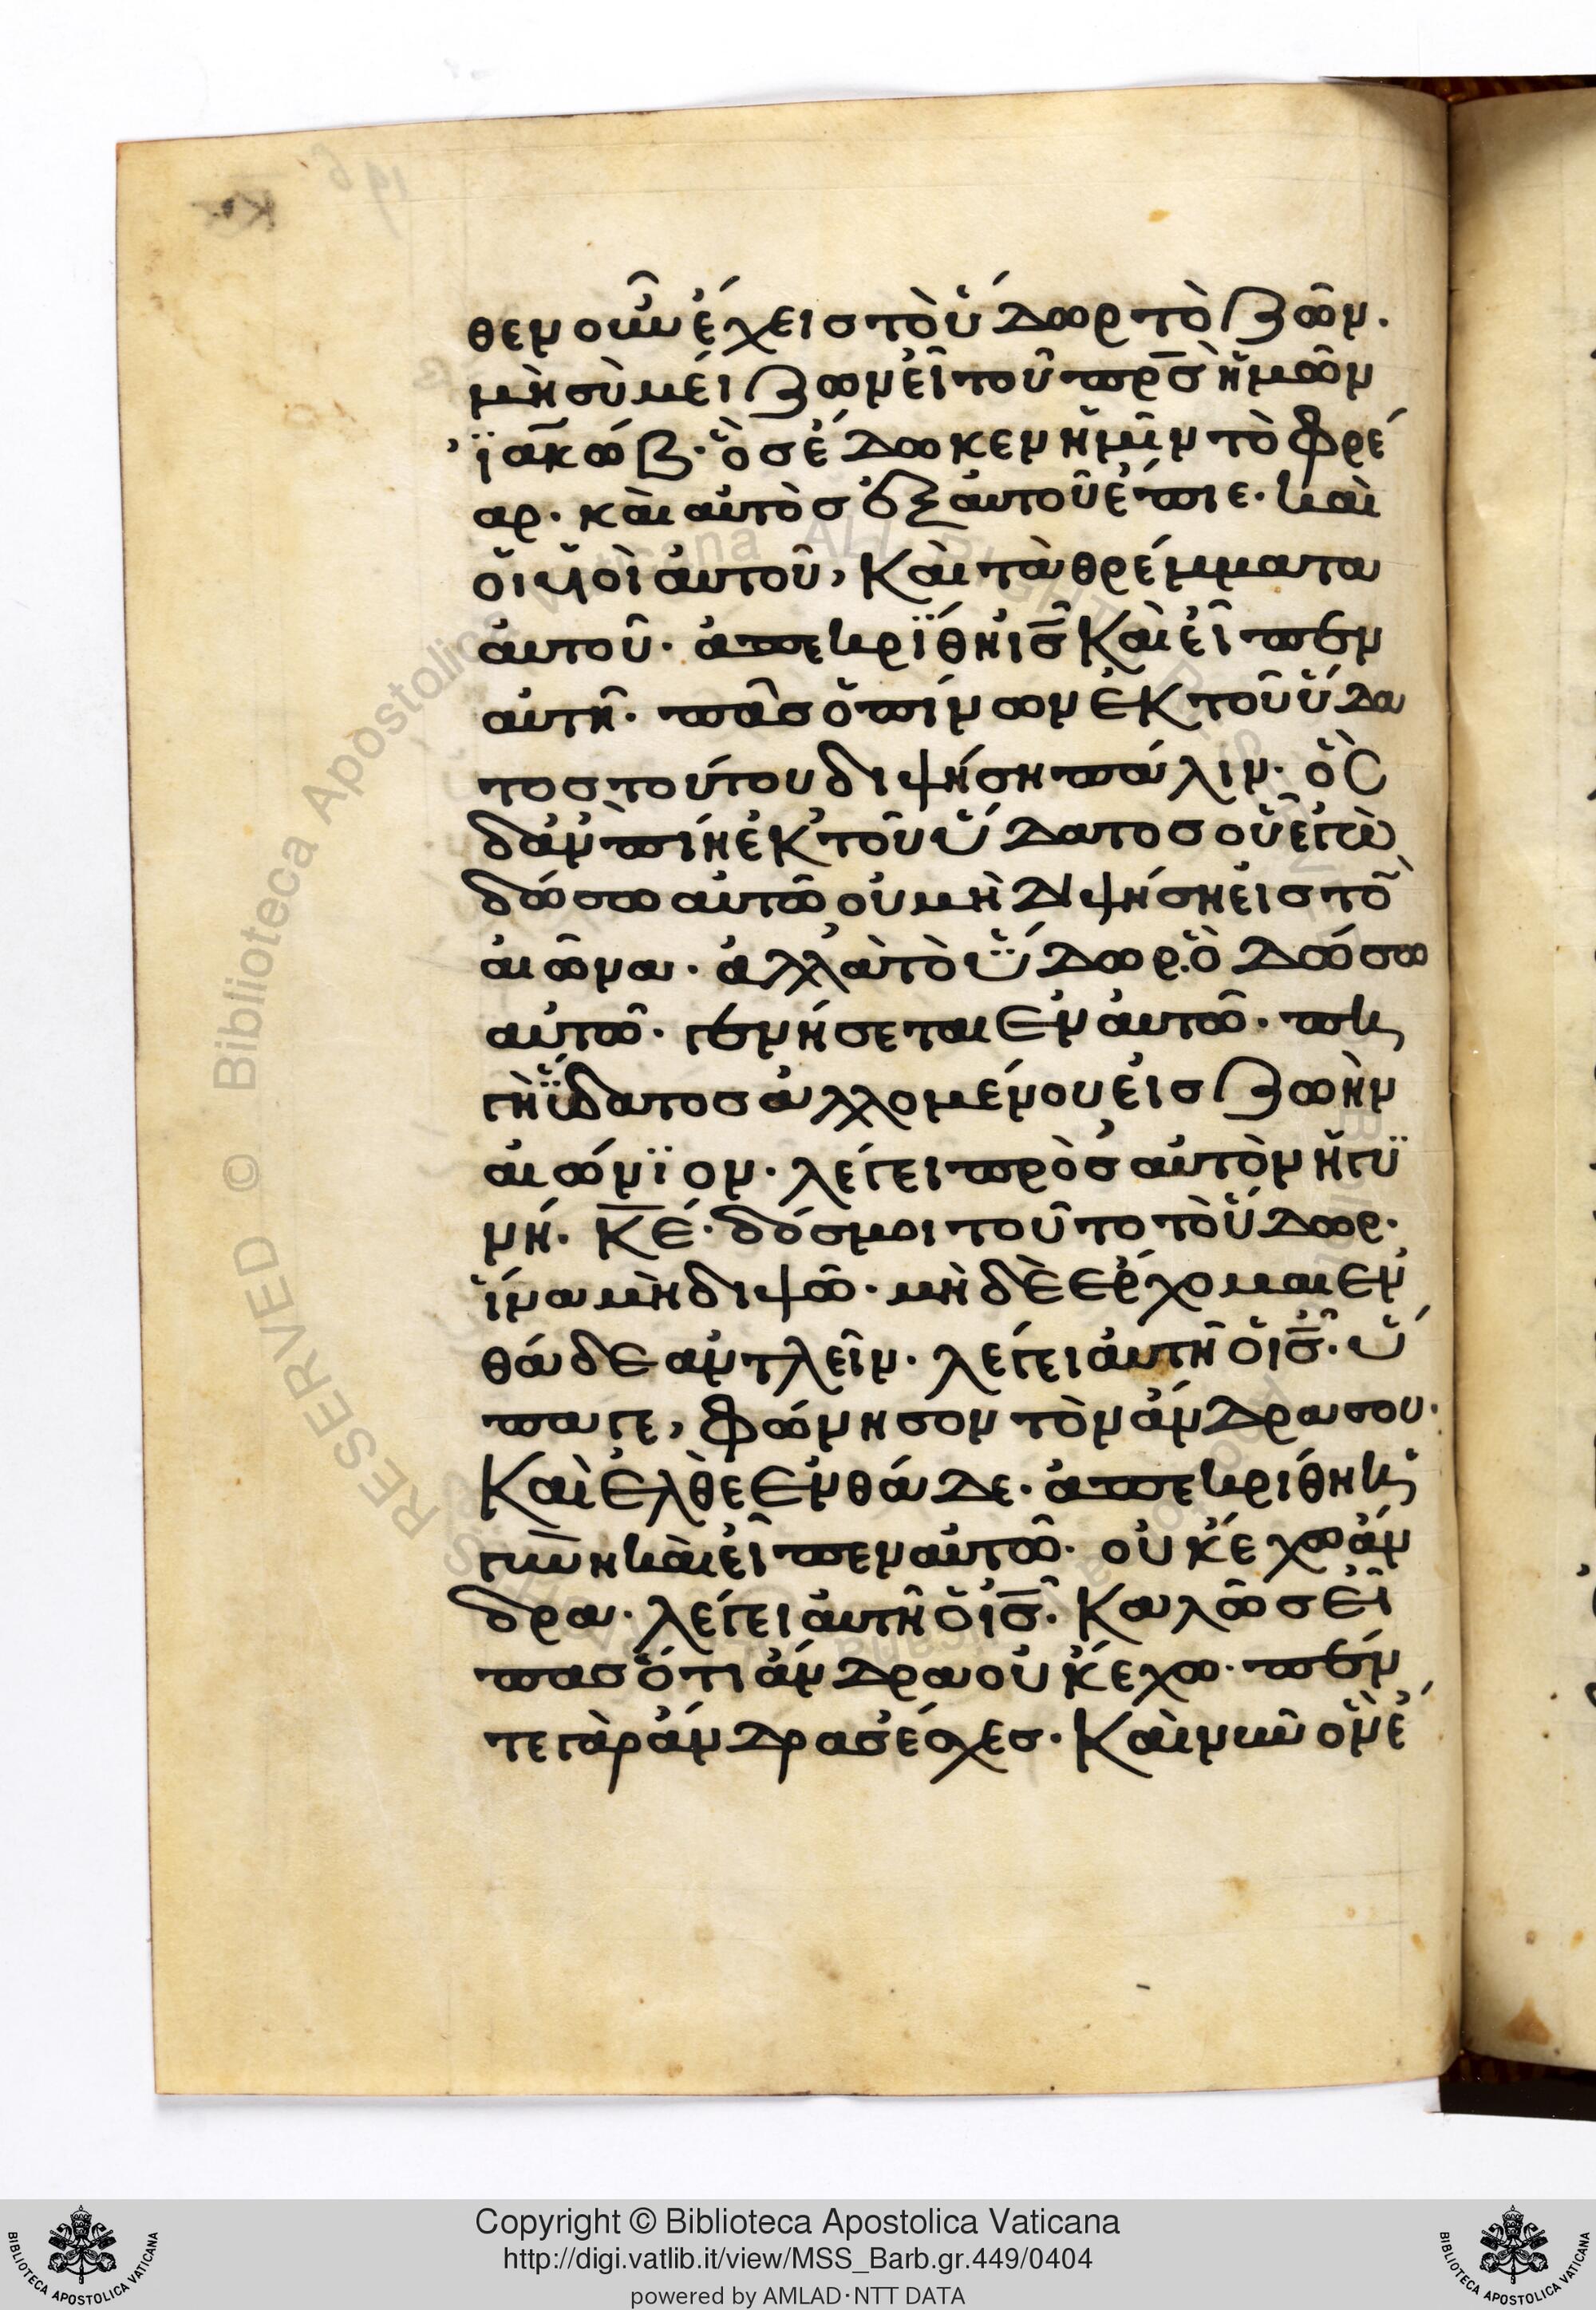 θεν οὖν ἔχεις τὸ ὕδωρ τὸ ζῶν.
μὴ σὺ μείζων εἶ τοῦ πρ̅σ̅ ἡμῶν
ϊακώβ· ὃς ἔδωκεν ἡμῖν τὸ φρέ
αρ· καὶ αὐτὸς ἐξ αὐτοῦ ἔπιε· καὶ
οἱ υἱοὶ αὐτοῦ, καὶ τὰ θρέμματα
αὐτοῦ· ἀπεκρίθη ι̅σ̅ καὶ εἶπεν
αὐτῆ· πᾶς ὁ πίνων ἐκ τοῦ ὕδα
τος τούτου διψήση πάλιν· ὃς
δ' ἂν πίη ἐκ τοῦ ὕδατος οὗ ἐγὼ
δώσω αὐτῶ οὐ μὴ διψήση εἰς τὸ
αἰῶνα· ἀλλὰ τὸ ὕδωρ ὃ δώσω
αὐτῶ· γενήσεται ἐν αὐτῶ· πη
γὴ ὕδατος ἀλλομένου εἰς ζωὴν
αἰώνϊον· λέγει πρὸς αὐτὸν ἡ γυ
νή· κ̅ε̅· δός μοι τοῦτο τὸ ὕδωρ·
ἵνα μὴ διψῶ· μὴ δὲ ἔρχομαι ἐν
θάδε ἀντλεῖν· λέγει αὐτῆ ὁ ι̅σ̅· ὕ
παγε, φώνησον τὸν ἄνδρα σου·
καὶ ἐλθὲ ἐνθάδε· ἀπεκρίθη ἡ
γυνὴ καὶ εἶπεν αὐτῶ· οὐκ ἔχω ἄν
δρα· λέγει αὐτῆ ὁ ι̅σ̅· καλῶς εἶ
πας ὅτι ἄνδρα οὐκ ἔχω· πέν
τε γὰρ ἄνδρας ἔσχες· καὶ νῦν ὃν ἔ
Copyright © Biblioteca Apostolica Vaticana
http://digi.vatlib.it/view/MSS_Barb.gr.449/0404
powered by AMLAD·NTT DATA